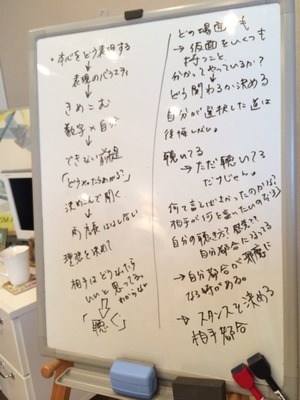 ・本心をどう表現する
表現のバラエティ
きめこむ
数字×自分
できない前提
「どうやったらわかる?」
決めこんで聞く
理想を決めて
相手はどうなったら
いいと思ってるか
わからない
「聴く」
どの場面も
→仮面をいくつも
持つこと
分かってやっているか?
どう関わるか決める
自分が選択した道は
後悔しない。
聴いてる
→ただ聴いてる
だけじゃん。
何て言えばよかったのかな?
相手が何と言ったいのだろう
自分の聴き方?
自分都合になってる
→自分都合が邪魔に
なる時がある。
→スタンスを決める
相手都合